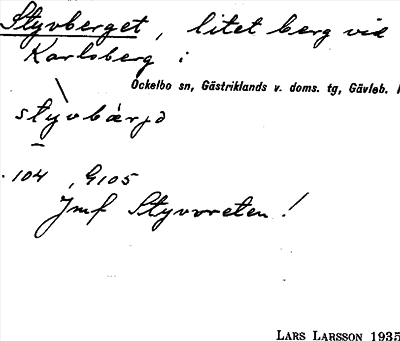 Styvberget, litet berg vid
Karlsberg i
Ockelbo sn, Gästriklands v. doms. tg, Gävleb.
stỳvbárjə
104, G105
Jmf Styvvreten!
LARS LARSSON 1935